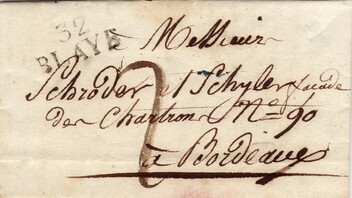 32
BLAYE
Messieurs
Schröder et Schyler facade
des Chartrons N° 90
à Bordeaux
2